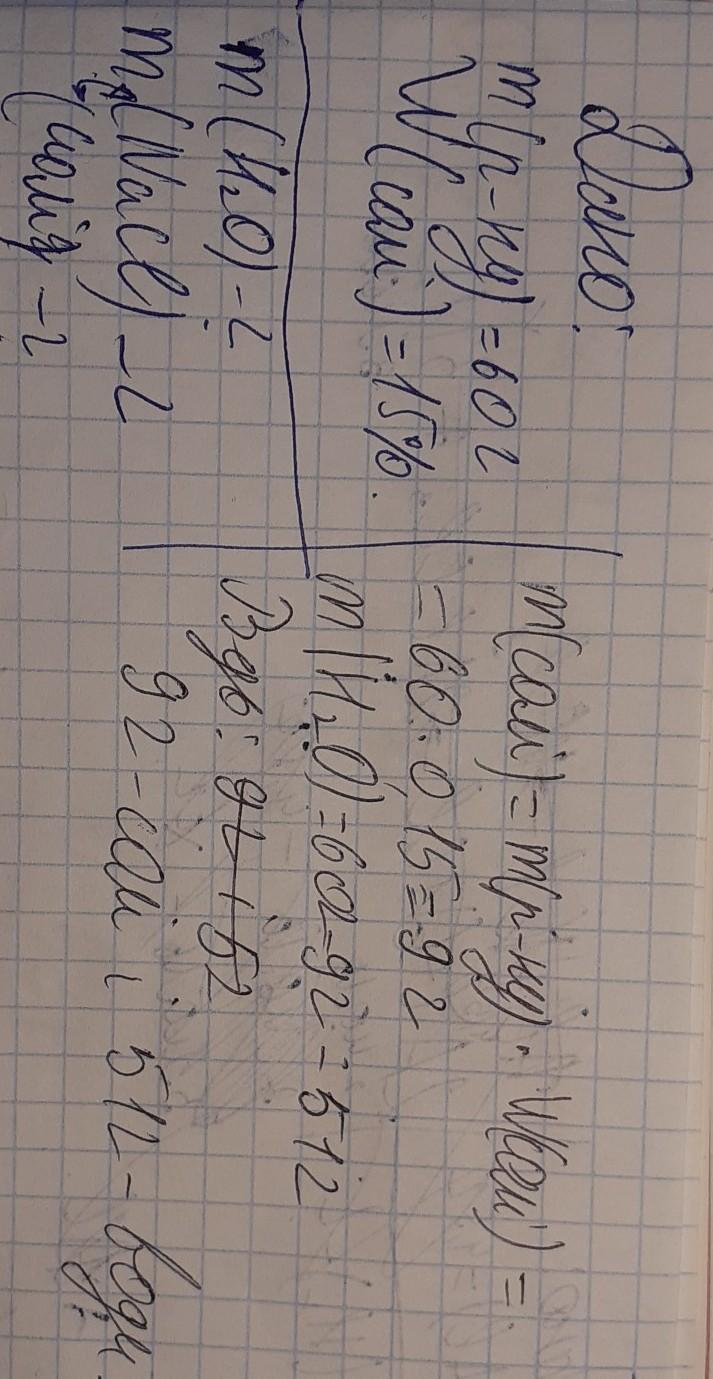 Дано:
m(р-ну)=60г
W(солі)=15%.
m(H₂O)-?
m(NaCl)-?
(солі)-?
m(солі)=m(р-ну)·W(солі)=
=60·0,15=9г
m(H₂O)=60г-9г=51г
Відв: 9г і 5г
9г-солі і 51г-води